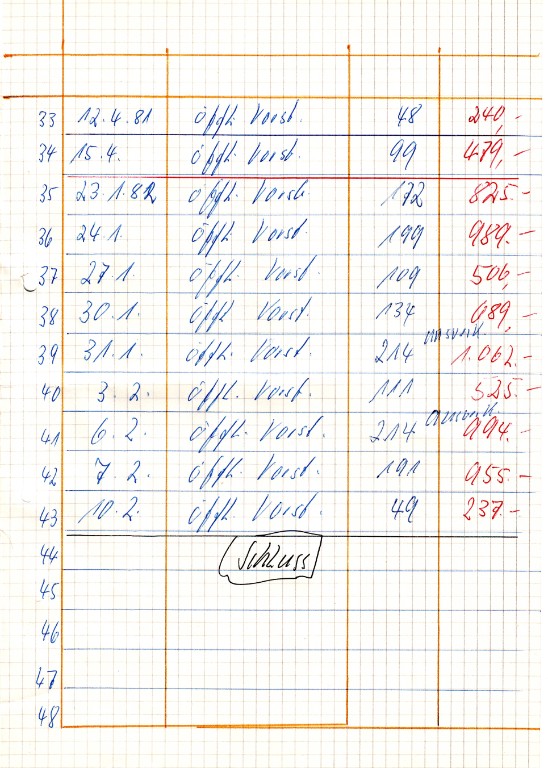 33 12.4.81 öfftl. Vorst. 48 240,-
34 15.4. öfftl. Vorst. 99 479,-
35 23.1.82 öfftl. Vorst. 172 825.-
36 24.1. öfftl. Vorst. 199 989.-
37 27.1. öfftl. Vorst. 109 506,-
38 30.1. öfftl. Vorst. 134 689,-
ausverk.
39 31.1. öfftl. Vorst. 214 1.062.-
40 3.2. öfftl. Vorst. 111 525.-
ausverk.
41 6.2. öfftl. Vorst. 214 994.-
42 7.2. öfftl. Vorst. 191 955.-
43 10.2. öfftl. Vorst. 49 237.-
44 Schluss
45
46
47
48